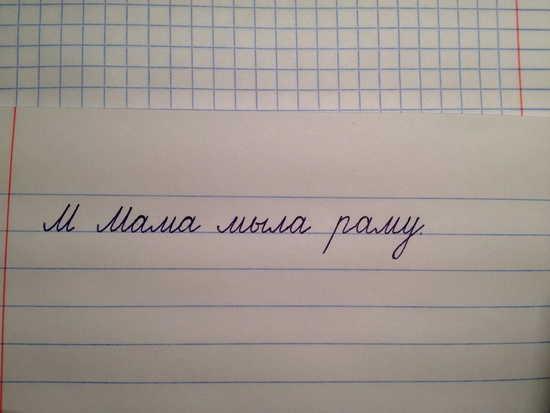 М Мама мыла раму.